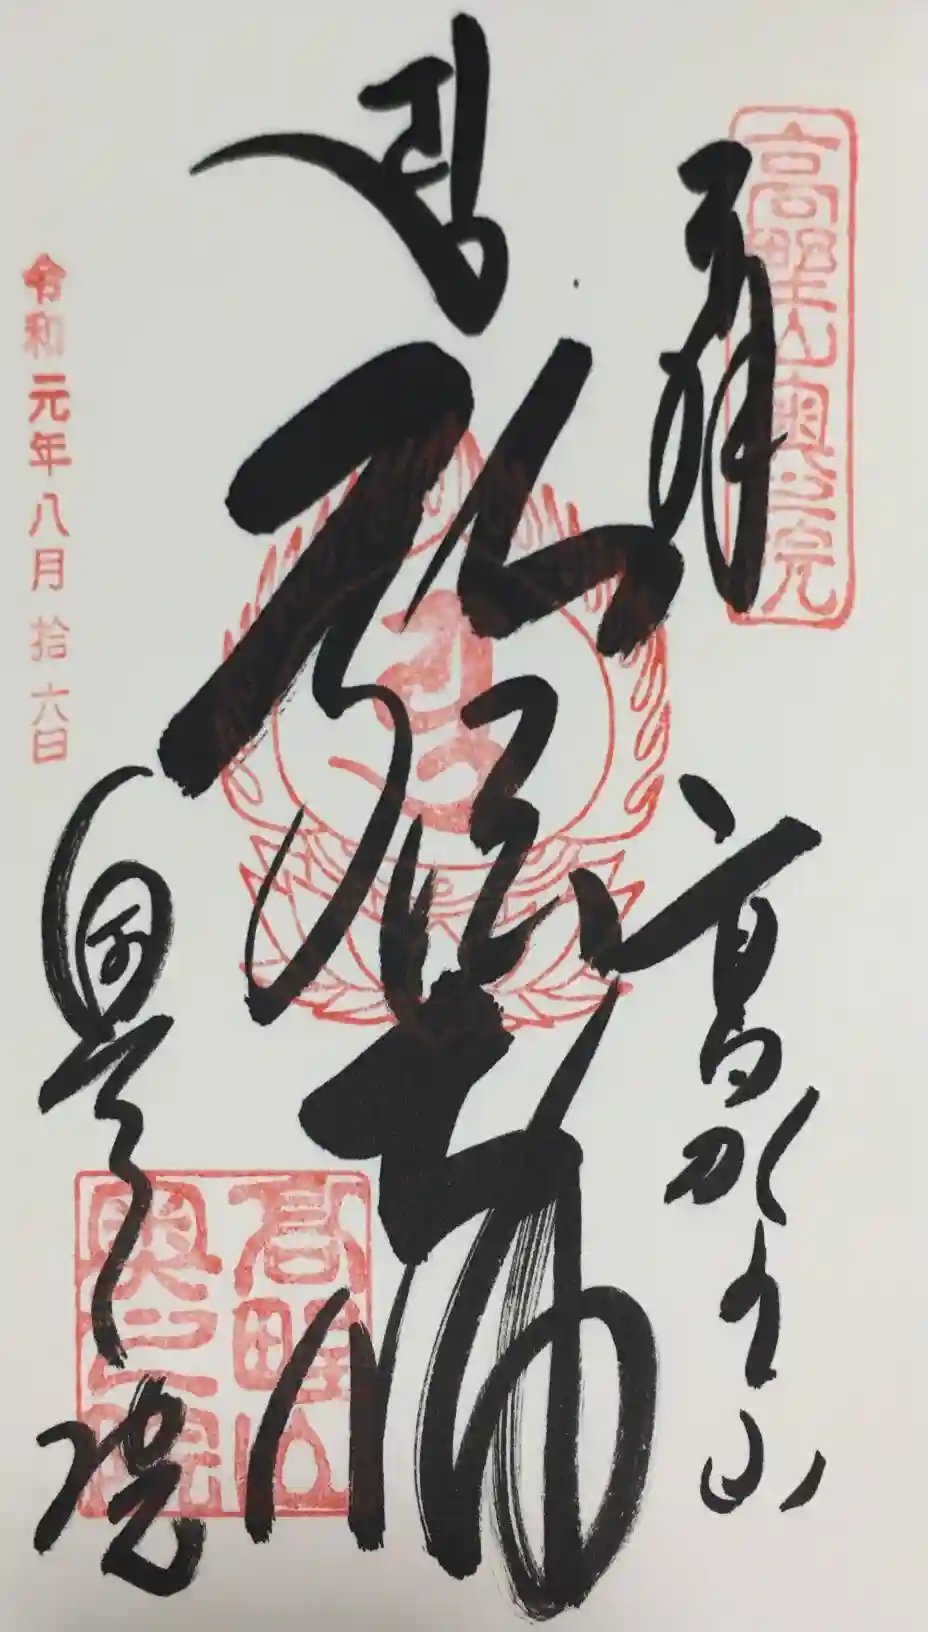 高野山奥之院
奉拝
高野山
弘法大師
奥之院
令和元年八月拾六日
高野山
奥之院